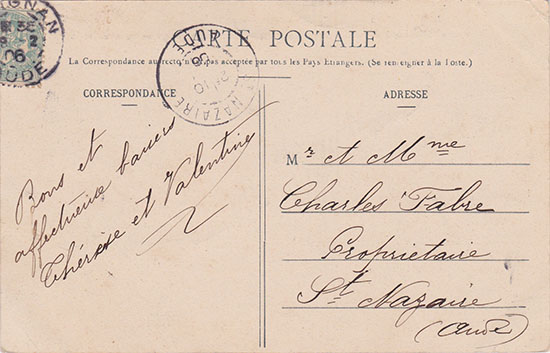 GNAN
06
AUDE
CARTE POSTALE
La Correspondance au recto n'est pas acceptée par tous les Pays Etrangers. (Se renseigner à la Poste.)
CORRESPONDANCE
NAZAIRE
AUDE
06
Bons et
affectueux baisers
Thérèse et Valentine
ADRESSE
Mr et Mme
Charles Fabre
Propriétaire
St Nazaire
(Aude)